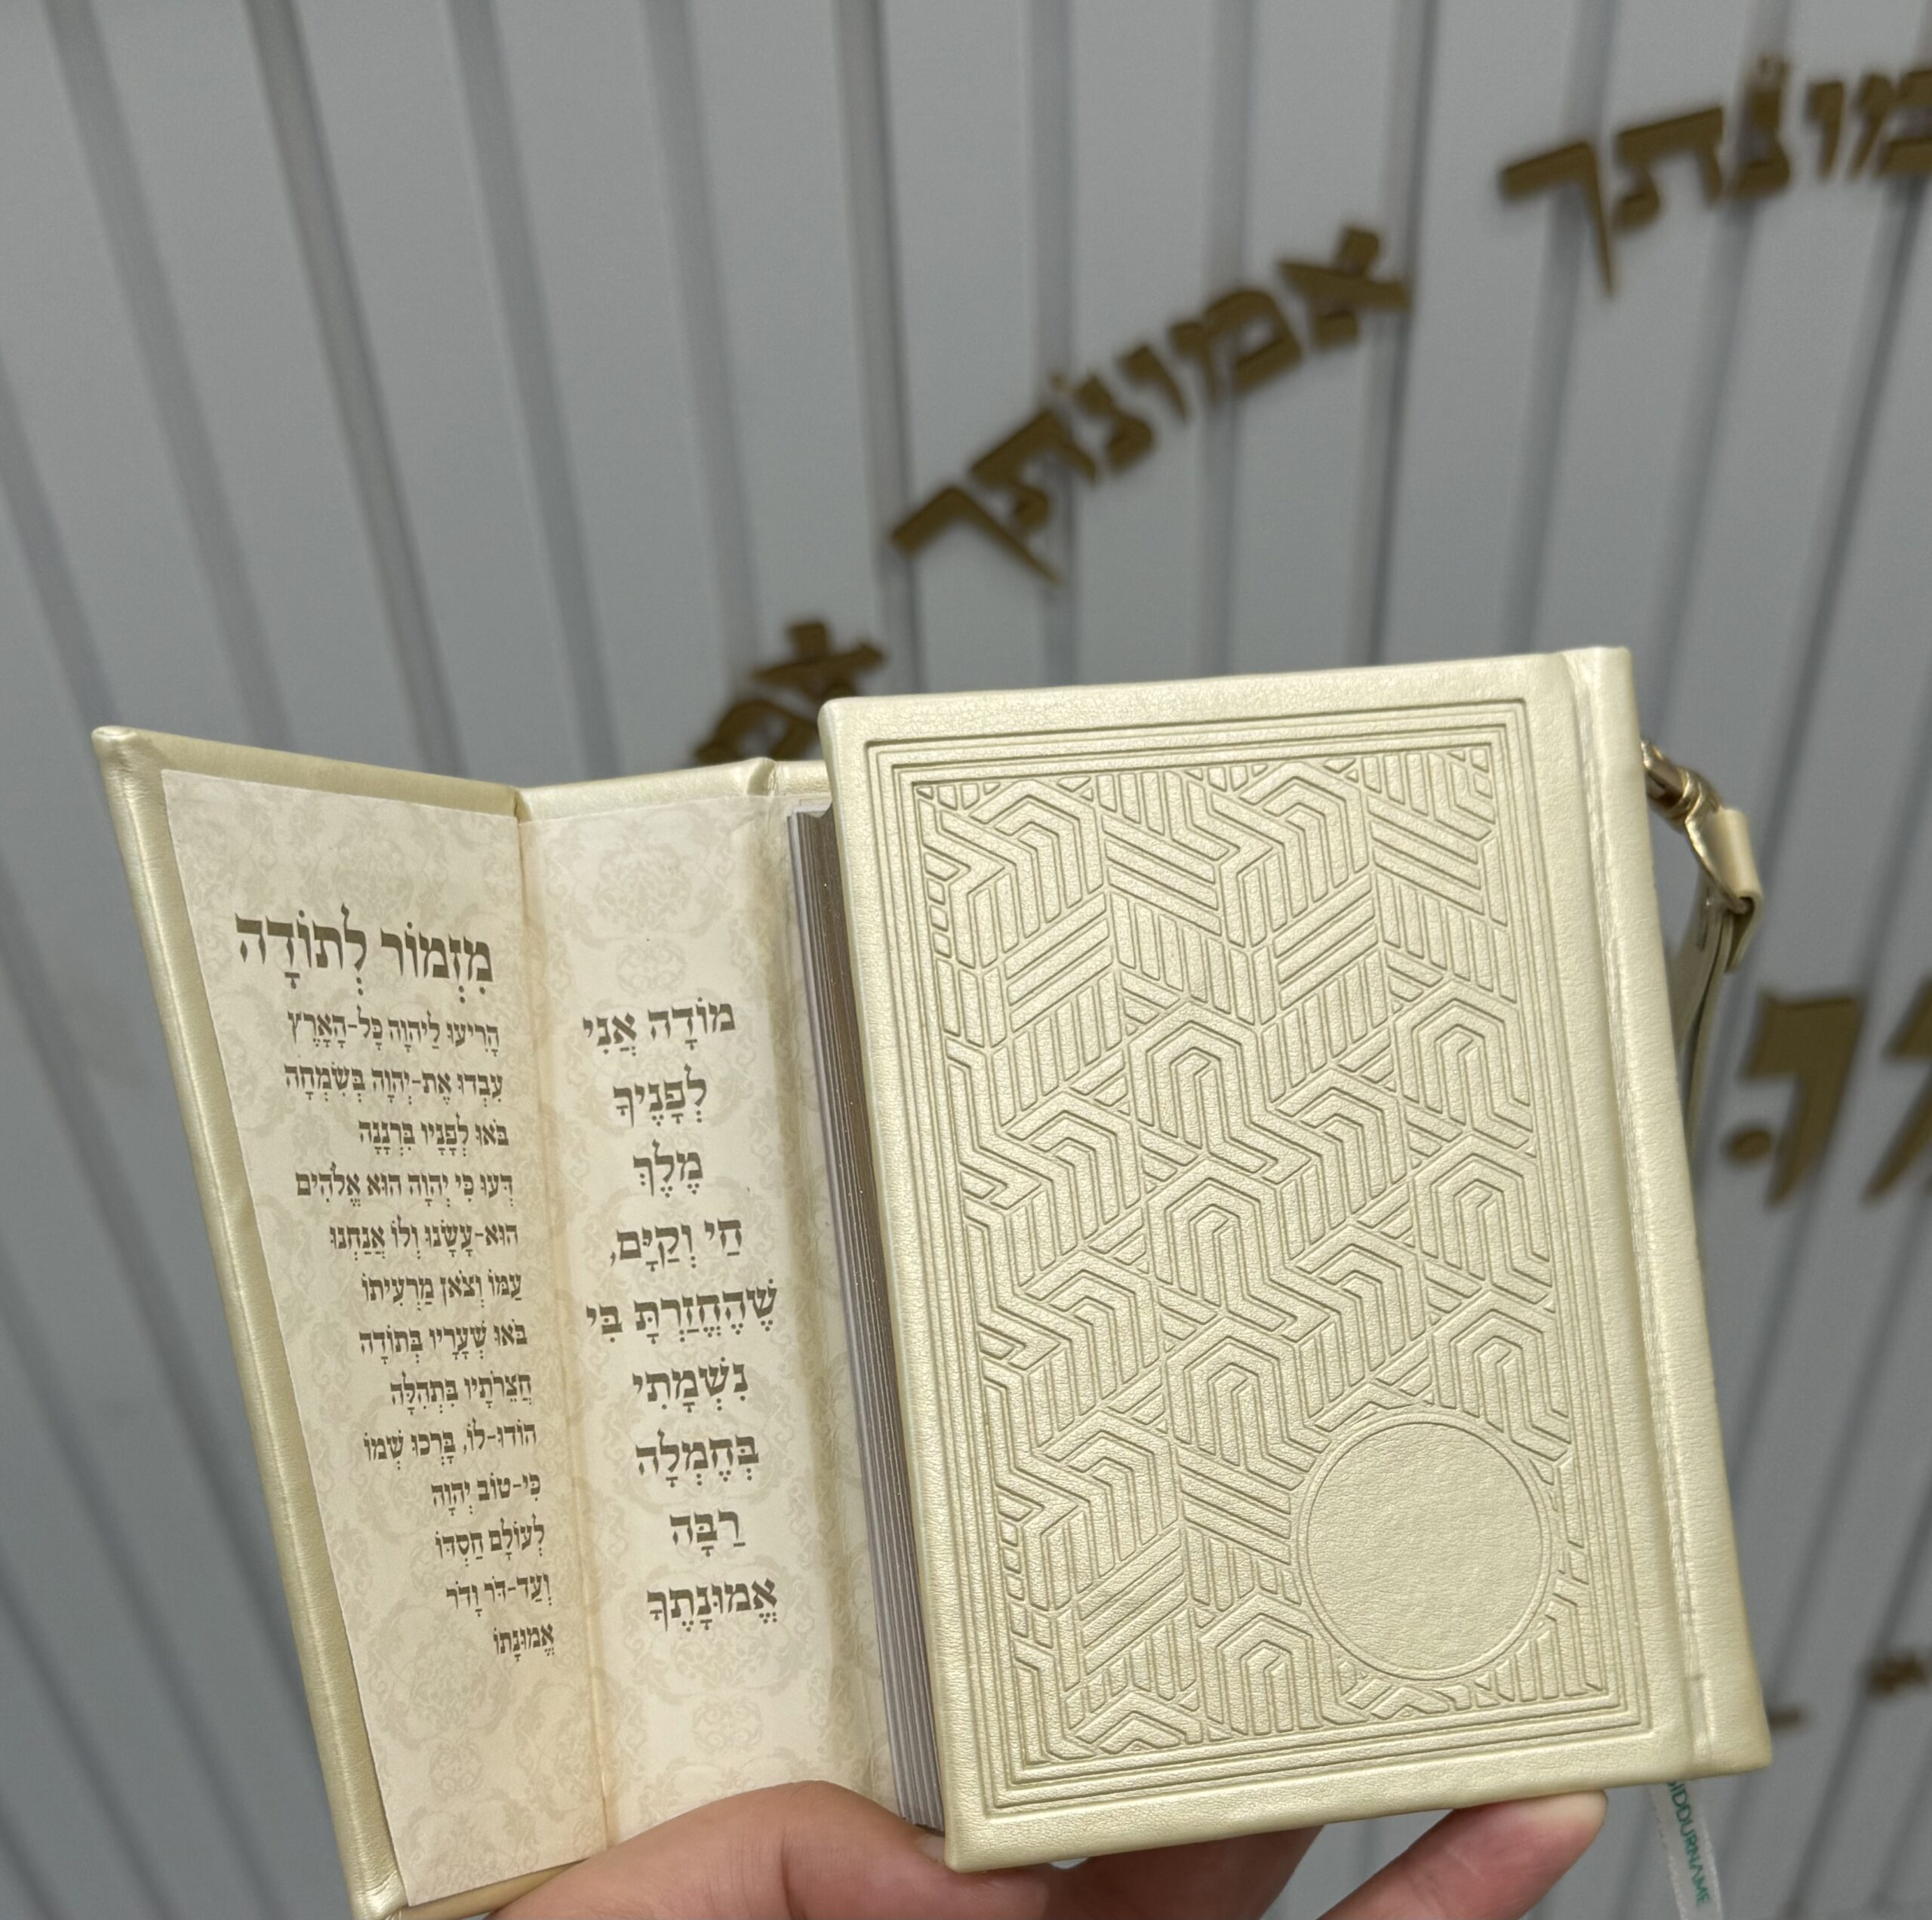 מִזְמוֹר לְתוֹדָה
הָרִיעוּ לַיהוָה כָּל-הָאָרֶץ
עִבְדוּ אֶת-יְהוָה בְּשִׂמְחָה
בֹּאוּ לְפָנָיו בִּרְנָנָה
דְּעוּ כִּי יְהוָה הוּא אֱלֹהִים
הוּא-עָשָׂנוּ וְלוֹ אֲנַחְנוּ
עַמּוֹ וְצֹאן מַרְעִיתוֹ
בֹּאוּ שְׁעָרָיו בְּתוֹדָה
חֲצֵרֹתָיו בִּתְהִלָּה
הוֹדוּ-לוֹ, בָּרְכוּ שְׁמוֹ
כִּי-טוֹב יְהוָה
לְעוֹלָם חַסְדּוֹ
וְעַד-דֹּר וָדֹר
אֱמוּנָתוֹ
מוֹדָה אֲנִי
לְפָנֶיךָ
מֶלֶךְ
חַי וְקַיָּם,
שֶׁהֶחֱזַרְתָּ בִּי
נִשְׁמָתִי
בְּחֶמְלָה
רַבָּה
אֱמוּנָתֶךָ
אמונתך
SIDDOURNAME